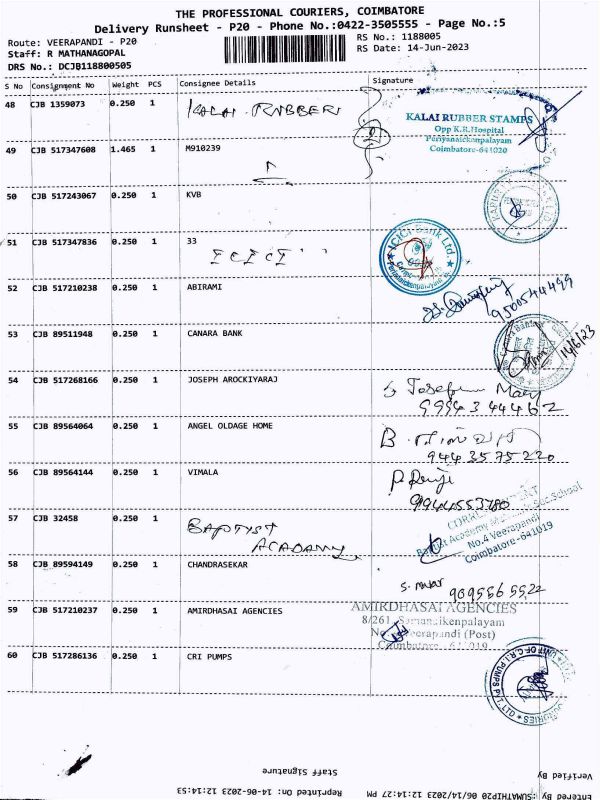 THE PROFESSIONAL COURIERS, COIMBATORE
Delivery Runsheet - P20 - Phone No.:0422-3505555 - Page No.:5
Route: VEERAPANDI - P20 RS No.: 1188005
Staff: R MATHANAGOPAL RS Date: 14-Jun-2023
DRS No.: DCJB118800505
S No Consignment No Weight PCS Consignee Details Signature
48 CJB 1359073 0.250 1 KALAI RUBBER
KALAI RUBBER STAMPS
Opp K.R.Hospital
Periyanaickenpalayam
Coimbatore-641020
49 CJB 517347608 1.465 1 M910239
50 CJB 517243067 0.250 1 KVB
51 CJB 517347836 0.250 1 33
ICICI
ICICI Bank Ltd
52 CJB 517210238 0.250 1 ABIRAMI
9500544499
53 CJB 89511948 0.250 1 CANARA BANK
14/6/23
54 CJB 517268166 0.250 1 JOSEPH AROCKIYARAJ
S Josephin Mary
9994344462
55 CJB 89564064 0.250 1 ANGEL OLDAGE HOME
9443575220
56 CJB 89564144 0.250 1 VIMALA
9944553780
57 CJB 32458 0.250 1 BAPTIST
ACADAMY
CORRESPONDENT
Baptist Academy Sec School
No.4 Veerapandi
Coimbatore-641019
58 CJB 89594149 0.250 1 CHANDRASEKAR
9095565522
59 CJB 517210237 0.250 1 AMIRDHASAI AGENCIES
AMIRDHASAI AGENCIES
8/261, Samanaikenpalayam
Veerapandi (Post)
Coimbatore
60 CJB 517286136 0.250 1 CRI PUMPS
UNIT OF C.R.I PUMPS P LTD
Staff Signature
Verified By
Reprinted On: 14-06-2023 12:14:53
Entered By :SUMATHIP20 06/14/2023 12:14:27 PM